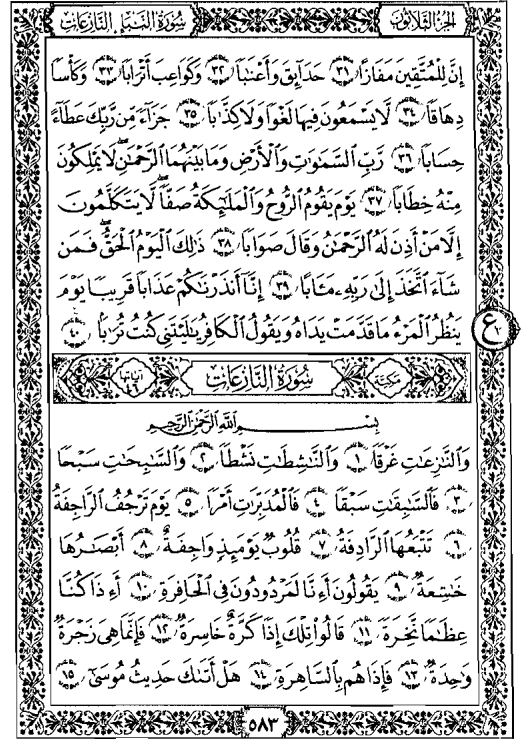 الجزء الثلاثون
سورة النبأ النازعات
إِنَّ لِلْمُتَّقِينَ مَفَازًا ٣١ حَدَآئِقَ وَأَعْنَٰبًا ٣٢ وَكَوَاعِبَ أَتْرَابًا ٣٣ وَكَأْسًا
دِهَاقًا ٣٤ لَّا يَسْمَعُونَ فِيهَا لَغْوًا وَلَا كِذَّٰبًا ٣٥ جَزَآءً مِّن رَّبِّكَ عَطَآءً
حِسَابًا ٣٦ رَّبِّ السَّمَٰوَٰتِ وَالْأَرْضِ وَمَا بَيْنَهُمَا الرَّحْمَٰنِ لَا يَمْلِكُونَ
مِنْهُ خِطَابًا ٣٧ يَوْمَ يَقُومُ الرُّوحُ وَالْمَلَٰٓئِكَةُ صَفًّا لَّا يَتَكَلَّمُونَ
إِلَّا مَنْ أَذِنَ لَهُ الرَّحْمَٰنُ وَقَالَ صَوَابًا ٣٨ ذَٰلِكَ الْيَوْمُ الْحَقُّ فَمَن
شَآءَ اتَّخَذَ إِلَىٰ رَبِّهِۦ مَـَٔابًا ٣٩ إِنَّآ أَنذَرْنَٰكُمْ عَذَابًا قَرِيبًا يَوْمَ
يَنظُرُ الْمَرْءُ مَا قَدَّمَتْ يَدَاهُ وَيَقُولُ الْكَافِرُ يَٰلَيْتَنِي كُنتُ تُرَٰبًا ٤٠
ع
سورة النازعات
مكية
آياتها ٤٦
بِسْمِ اللَّهِ الرَّحْمَٰنِ الرَّحِيمِ
وَالنَّٰزِعَٰتِ غَرْقًا ١ وَالنَّٰشِطَٰتِ نَشْطًا ٢ وَالسَّٰبِحَٰتِ سَبْحًا
٣ فَالسَّٰبِقَٰتِ سَبْقًا ٤ فَالْمُدَبِّرَٰتِ أَمْرًا ٥ يَوْمَ تَرْجُفُ الرَّاجِفَةُ
٦ تَتْبَعُهَا الرَّادِفَةُ ٧ قُلُوبٌ يَوْمَئِذٍ وَاجِفَةٌ ٨ أَبْصَٰرُهَا
خَٰشِعَةٌ ٩ يَقُولُونَ أَءِنَّا لَمَرْدُودُونَ فِي الْحَافِرَةِ ١٠ أَءِذَا كُنَّا
عِظَٰمًا نَّخِرَةً ١١ قَالُوا۟ تِلْكَ إِذًا كَرَّةٌ خَاسِرَةٌ ١٢ فَإِنَّمَا هِيَ زَجْرَةٌ
وَٰحِدَةٌ ١٣ فَإِذَا هُم بِالسَّاهِرَةِ ١٤ هَلْ أَتَىٰكَ حَدِيثُ مُوسَىٰٓ ١٥
٥٨٣